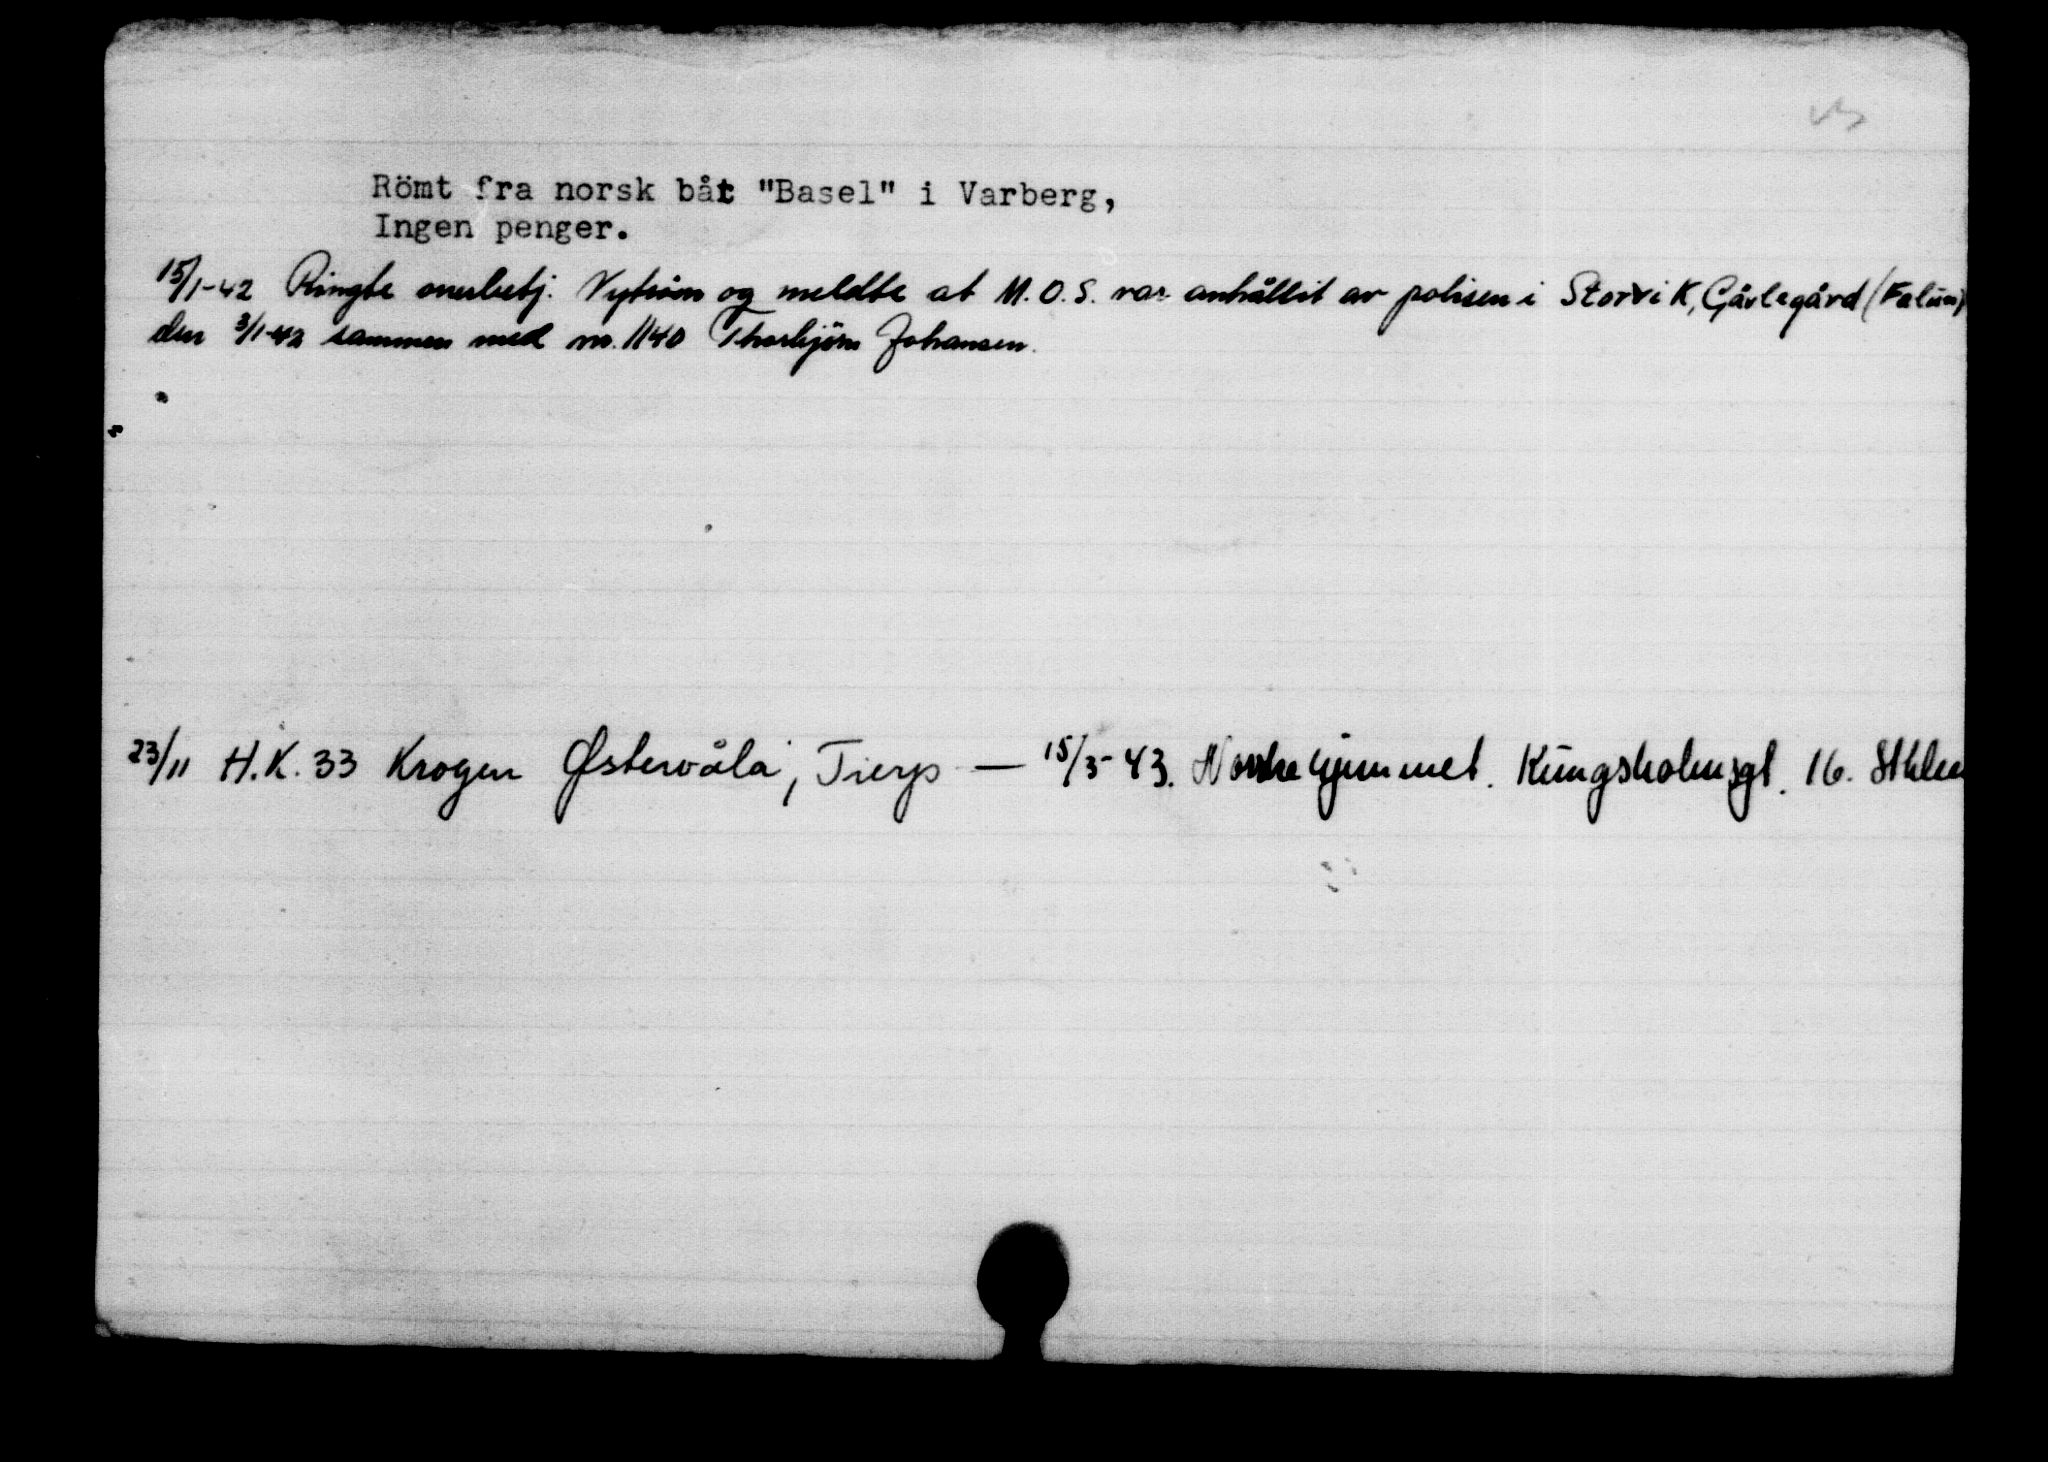 Römt fra norsk båt "Basel" i Varberg,
Ingen penger.
15/1-42 Ringte overbetj. Nyström og meldte at M.O.S. var anhållit av polisen i Storvik, Gävlegård (Falun)
den 3/1-42 sammen med nr. 1140 Thorbjörn Johansen.
23/11 H.K. 33 Krogen Østervåla, Tierp — 15/3-43. Norske hjemmet. Kungsholmsgt. 16. Sthlm